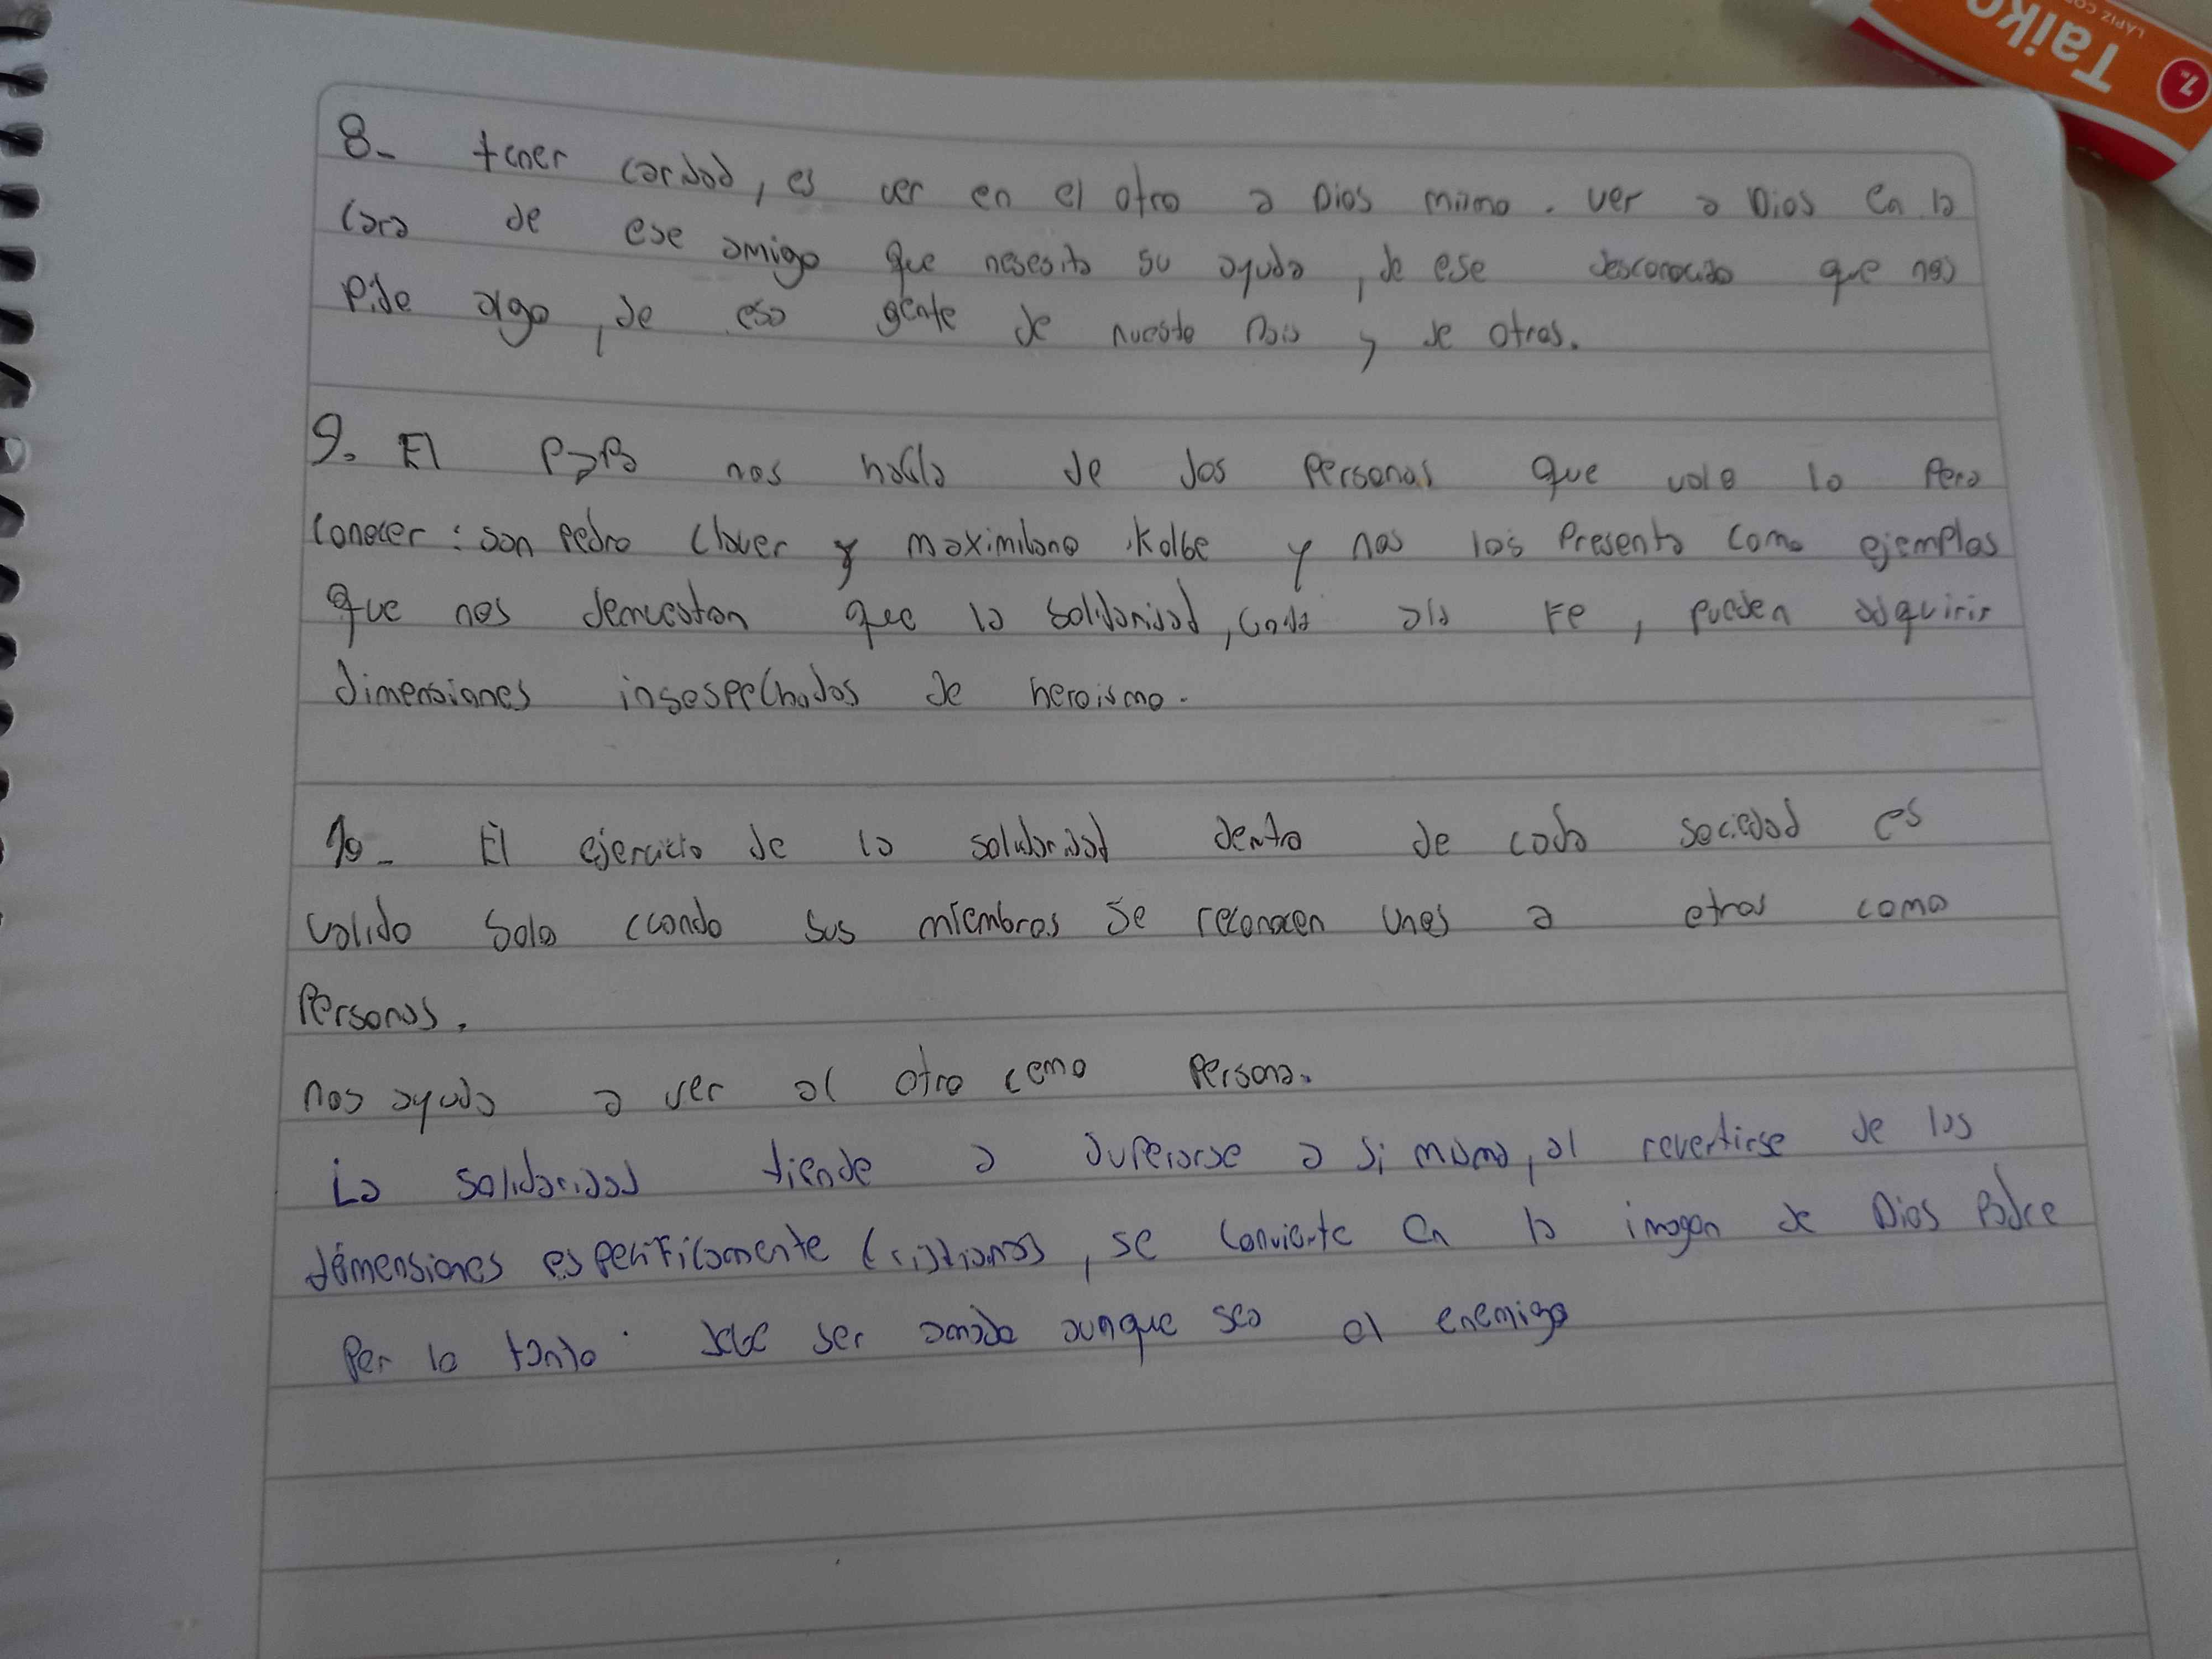 Taiko
LÁPIZ CO
8- tener caridad, es ver en el otro a Dios mismo. ver a Dios en la
cara de ese amigo que nesesita su ayuda, de ese desconocido que nos
Pide algo, de esa gente de nuesto Pais y de otros.
9. El PaPa nos habla de dos Personas que vale la Pena
conocer: san Pedro Claver y maximilano Kolbe y nos los Presenta como ejemplos
que nos demuestan que la solidaridad, unida ala Fe, pueden adquirir
dimensiones insospechados de heroismo.
10- El ejercicio de la solidaridad dentro de cada sociedad es
valido Solo cuando sus miembros se reconocen unos a otros como
Personas.
nos ayuda a ver al otro como Persona.
La solidaridad tiende a superarse a si misma, al revertirse de las
dimensiones especificamente cristianas, se convierte en la imagen de Dios Padre
Por lo tanto debe ser amado aunque sea el enemigo